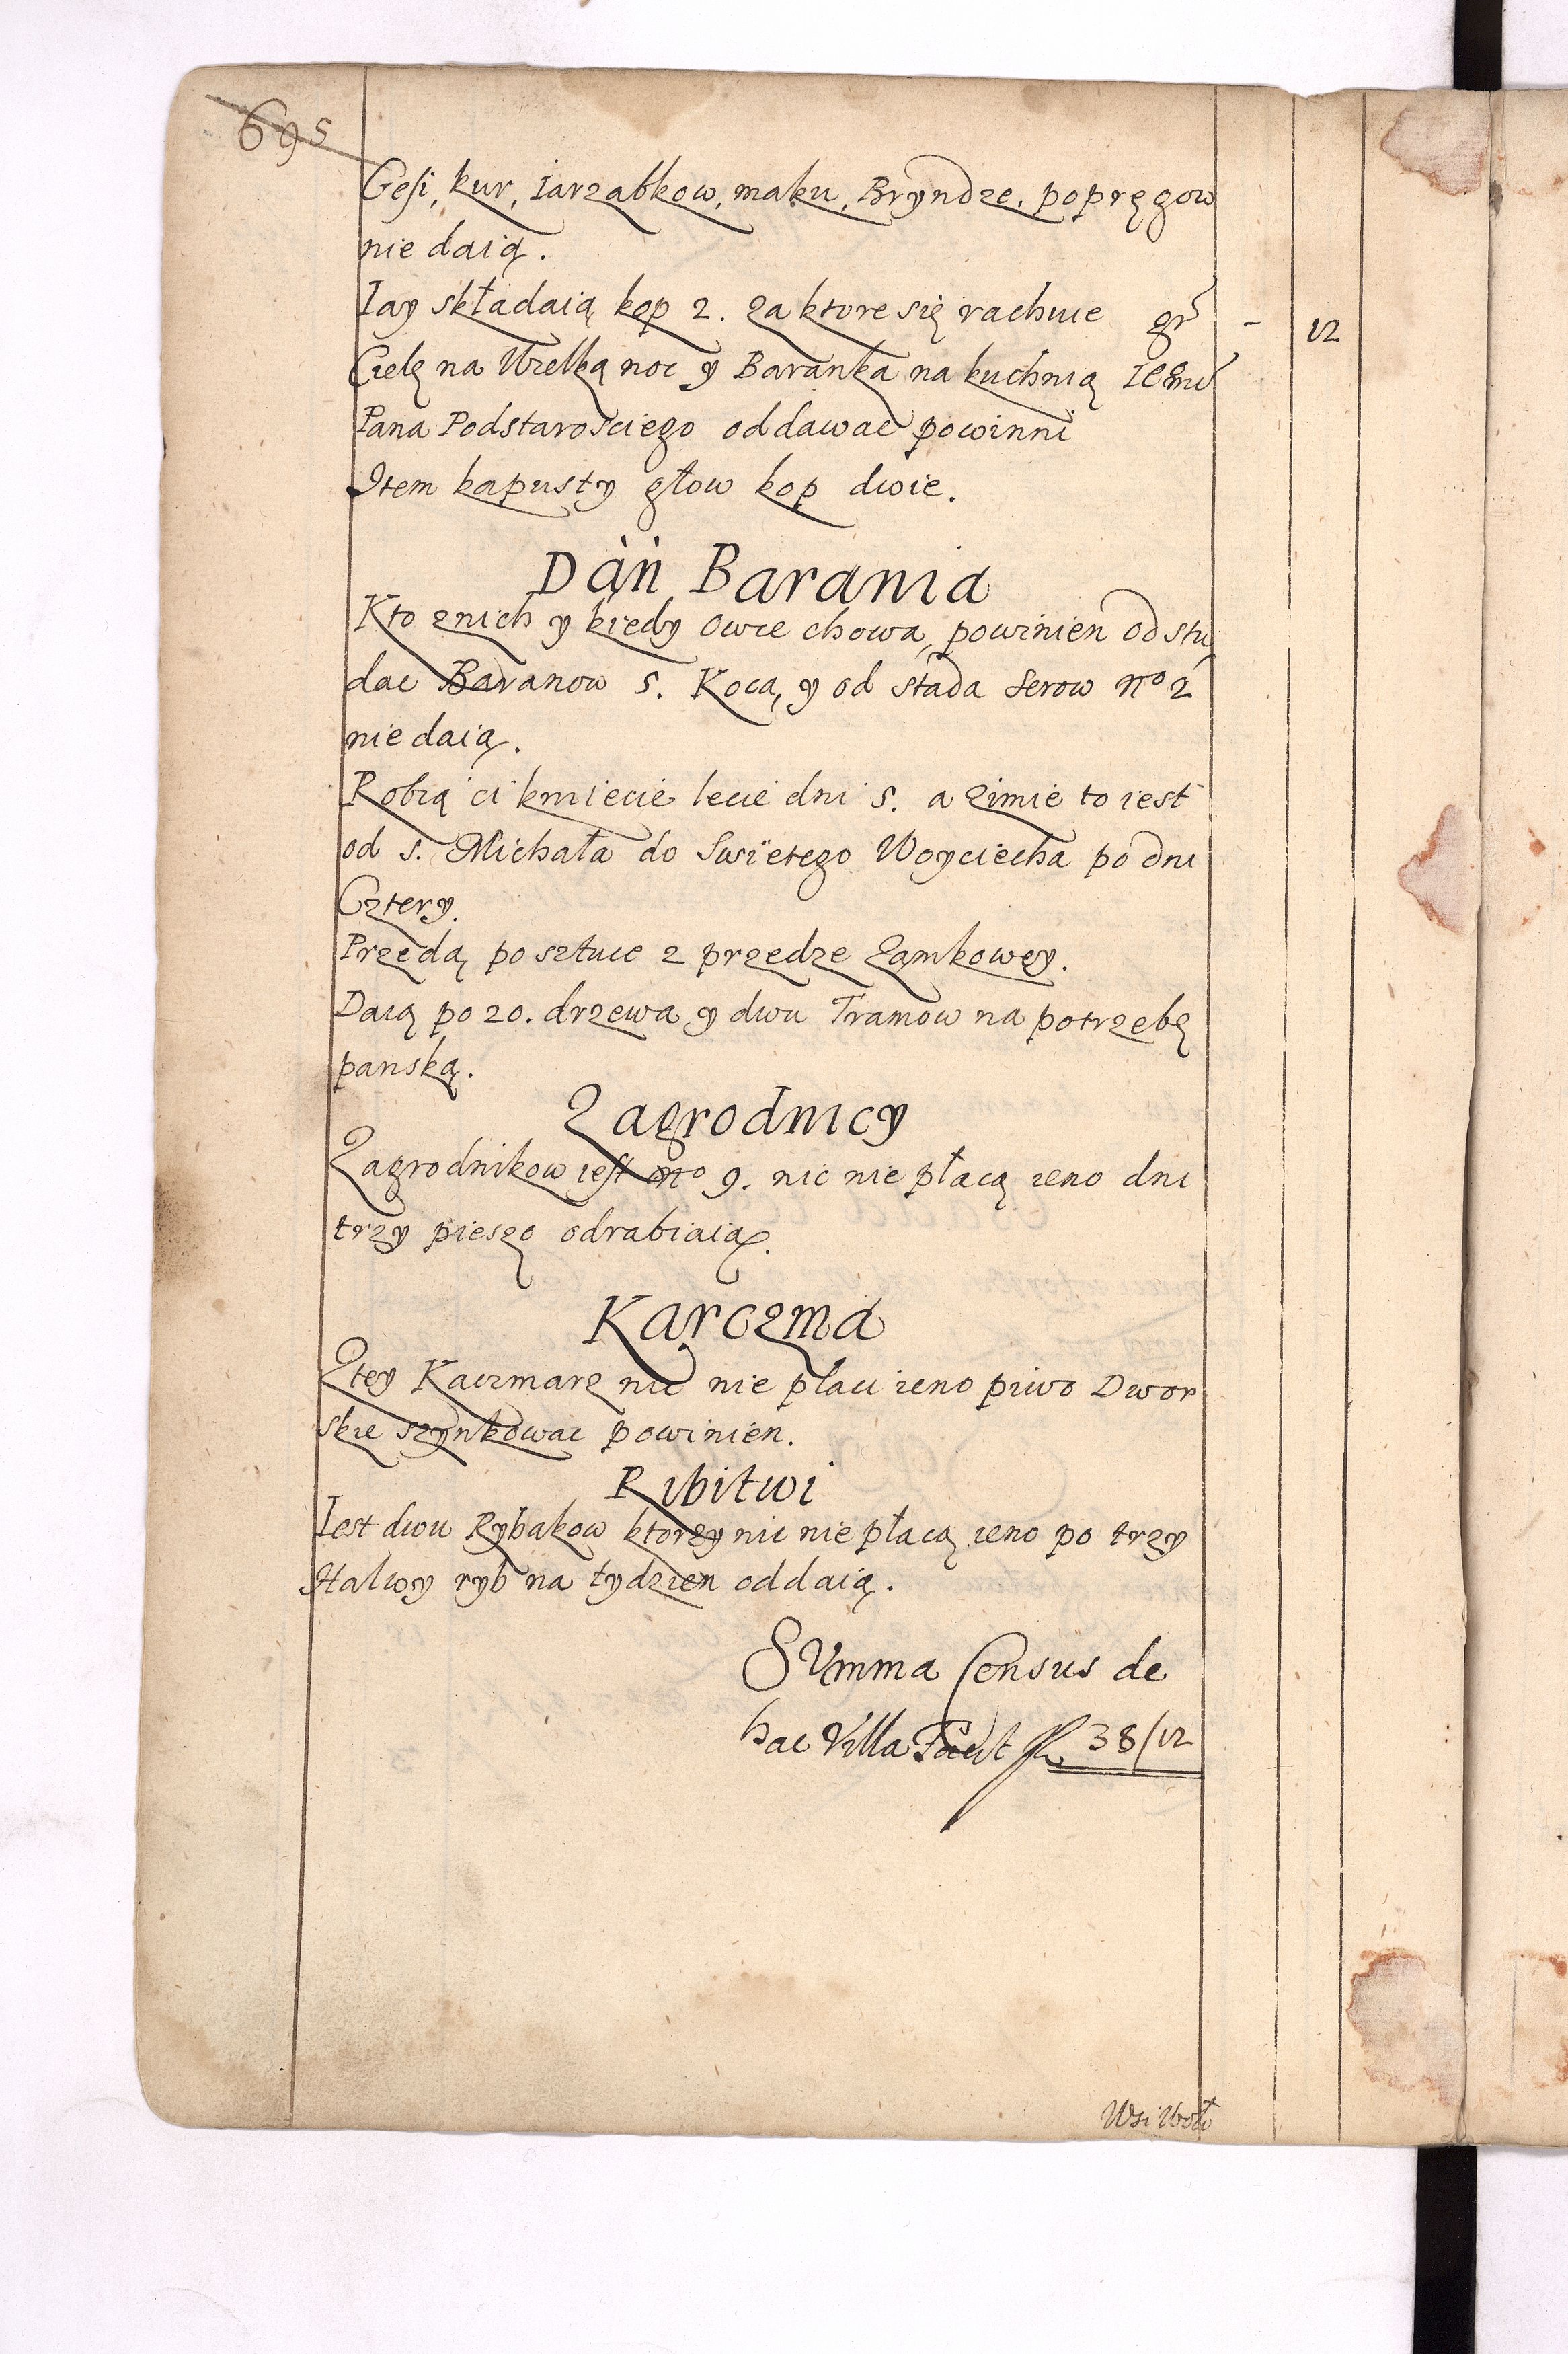 695
Gęsi, kur, Iarząbkow, maku, Bryndze, popręgow
nie daią.
Iay składaią kop 2. za ktore się rachuie gr - 12
Cielę na Wielką noc y Baranka na kuchnią Iemci
Pana Podstarosciego oddawac powinni
Item kapusty głow kop dwie.
Dań Barania
Kto znich y kiedy owce chowa, powinien od stu
dac Baranow 5. Koca, y od stada serow nº 2
nie daią.
Robią ci kmiecie lecie dni 5. a zimie to iest
od s. Michała do Swiętego Woyciecha po dni
Cztery.
Przędą po sztuce z przedze Zamkowey.
Daią po 20. drzewa y dwu Tramow na potrzebę
panską.
Zagrodnicy
Zagrodnikow iest nº 9. nic nie płacą ieno dni
trzy pieszo odrabiaią.
Karczma
Ztey Kaczmarz nic nie płaci ieno piwo Dwor
skie szynkowac powinien.
Ribitwi
Iest dwu Rybakow ktorzy nic nie płacą ieno po trzy
Halwy ryb na tydzien oddaią.
SUmma Census de
hac Villa Facit fl 38/12
Wsi